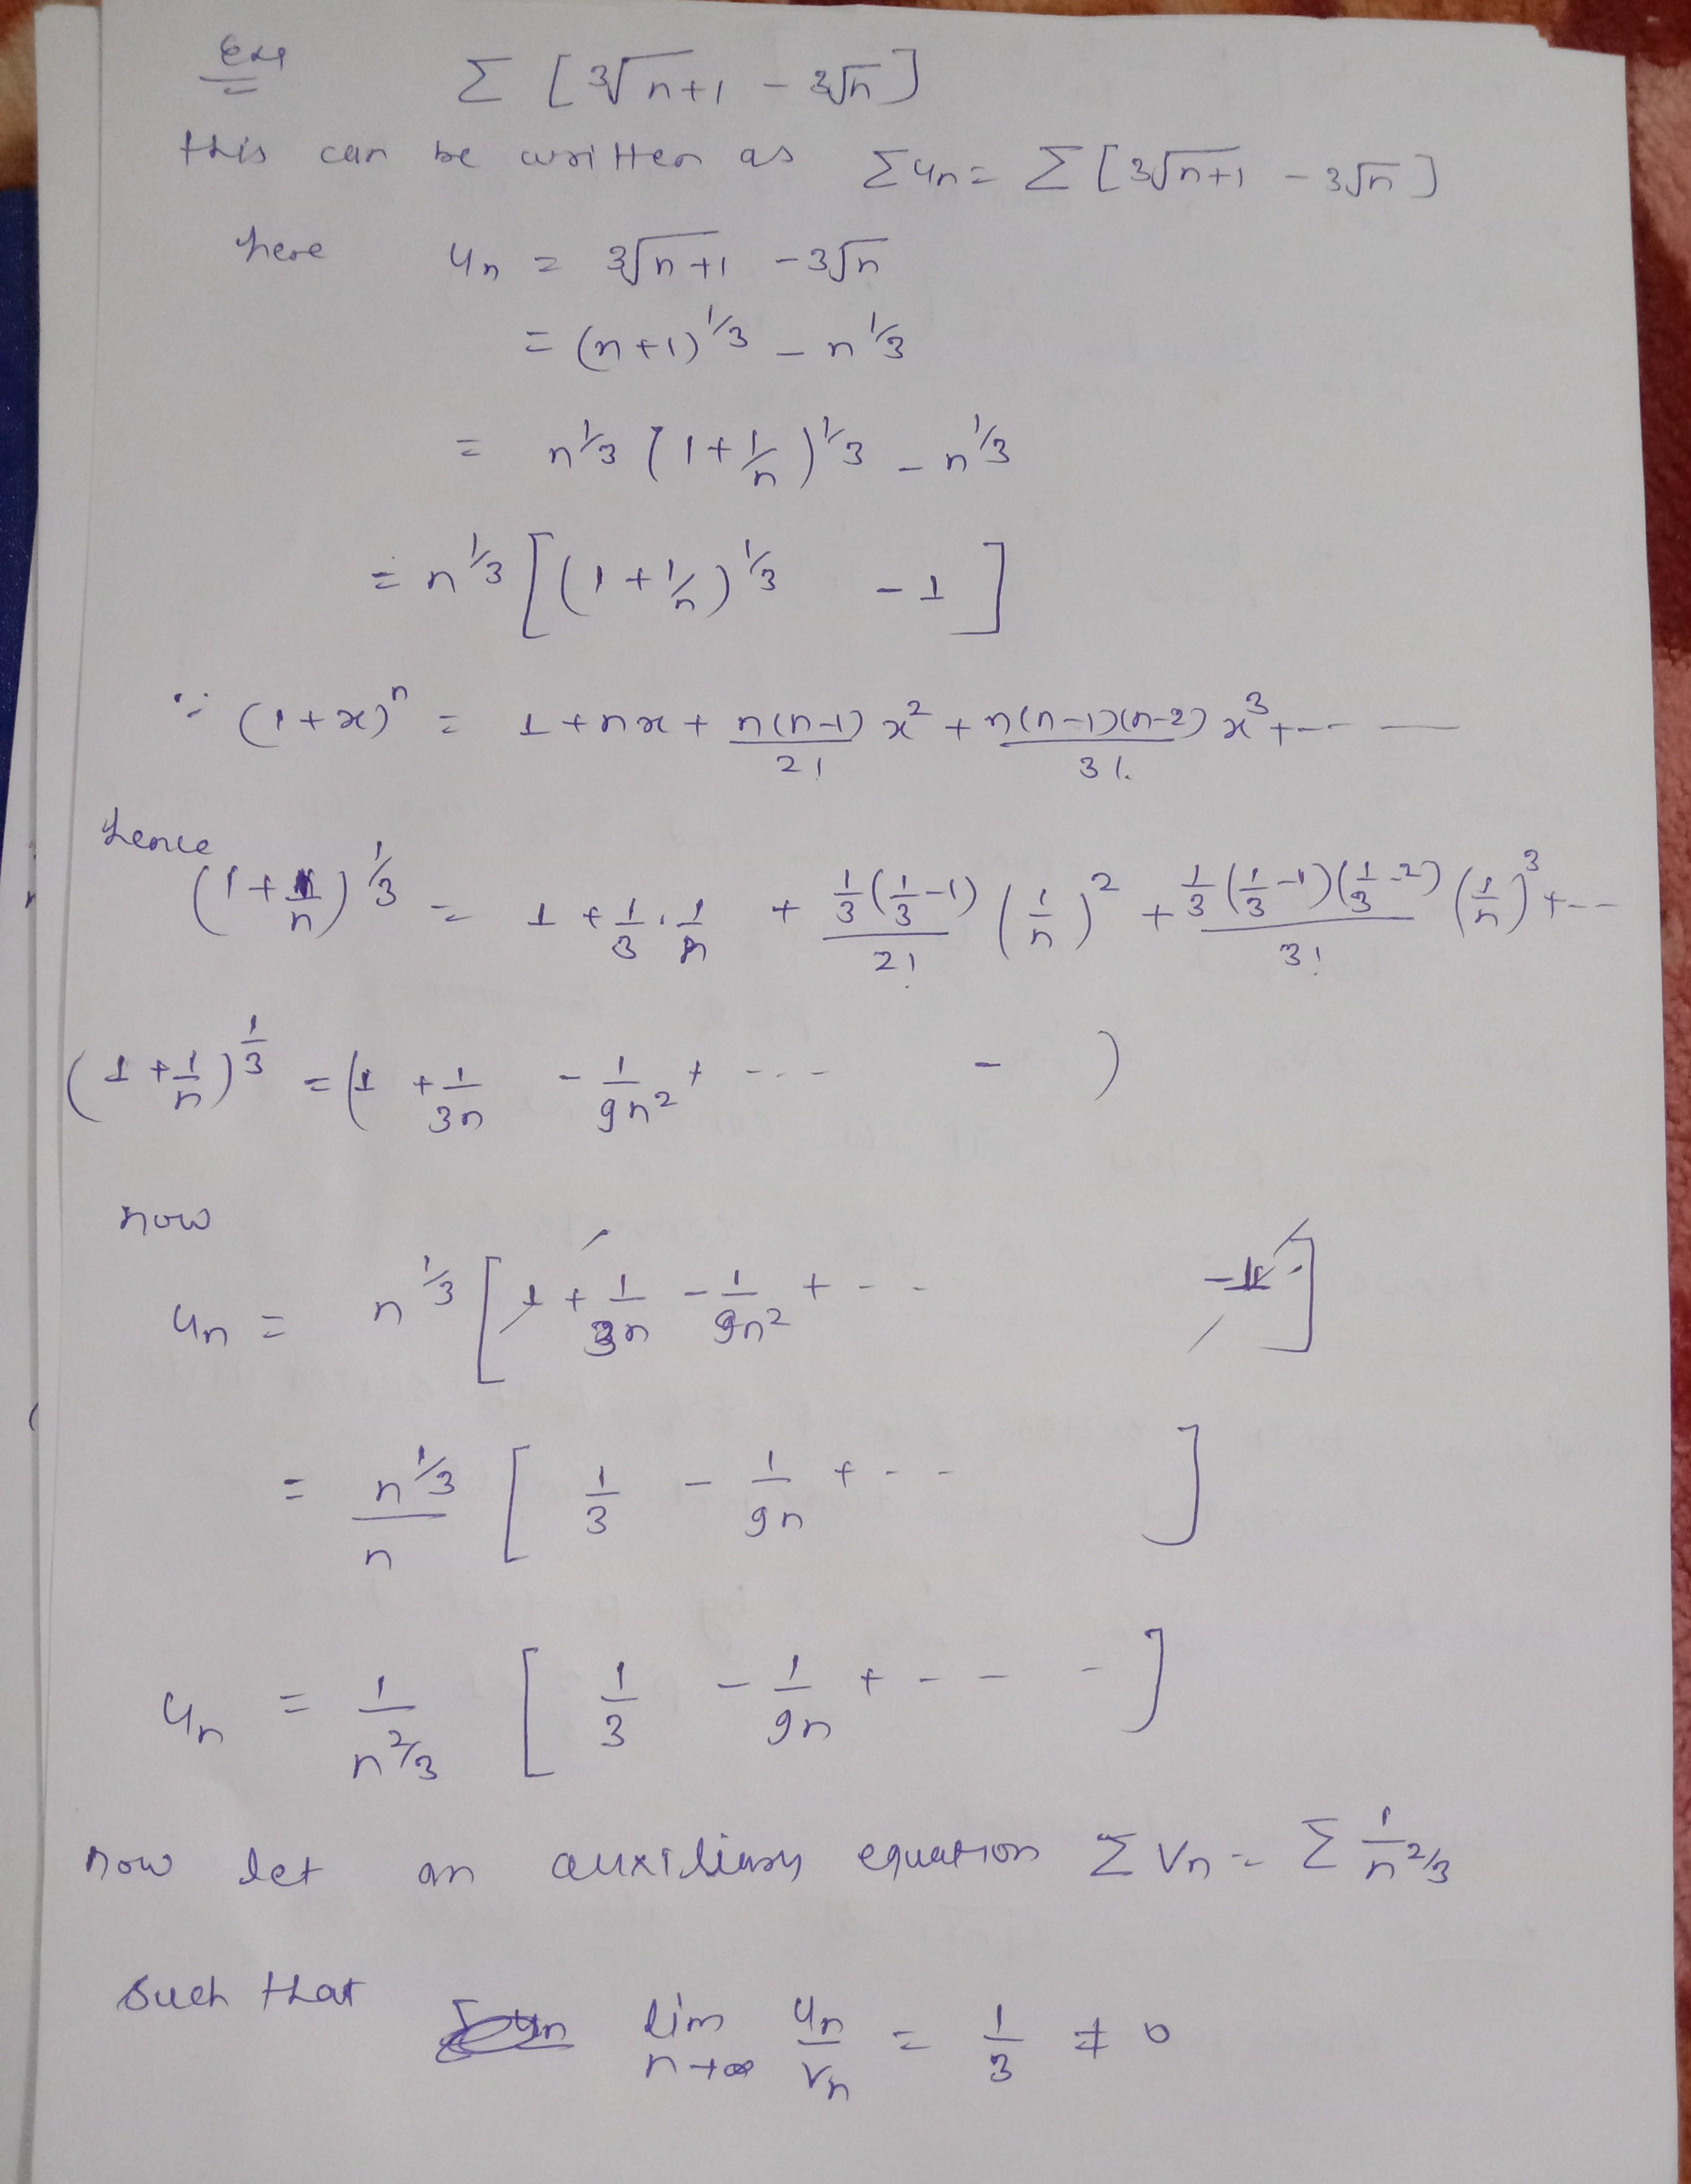 Ex
Σ [∛n+1 - ∛n]
this can be written as Σun = Σ [3√n+1 - 3√n]
here un = ∛n+1 - 3√n
= (n+1)^1/3 - n^1/3
= n^1/3 (1+1/n)^1/3 - n^1/3
= n^1/3 [(1+1/n)^1/3 - 1]
∵ (1+x)^n = 1 + nx + n(n-1)/2! x^2 + n(n-1)(n-2)/3! x^3 + --- —
hence
(1+1/n)^1/3 = 1 + 1/3 . 1/n + 1/3(1/3-1)/2! (1/n)^2 + 1/3(1/3-1)(1/3-2)/3! (1/n)^3 + --
(1+1/n)^1/3 = (1 + 1/3n - 1/9n^2 + --- - )
now
un = n^1/3 [1 + 1/3n - 1/9n^2 + -- -1]
= n^1/3/n [1/3 - 1/9n + -- ]
un = 1/n^2/3 [1/3 - 1/9n + -- -]
now let an auxiliary equation Σ Vn = Σ 1/n^2/3
such that lim n→∞ un/vn = 1/3 ≠ 0